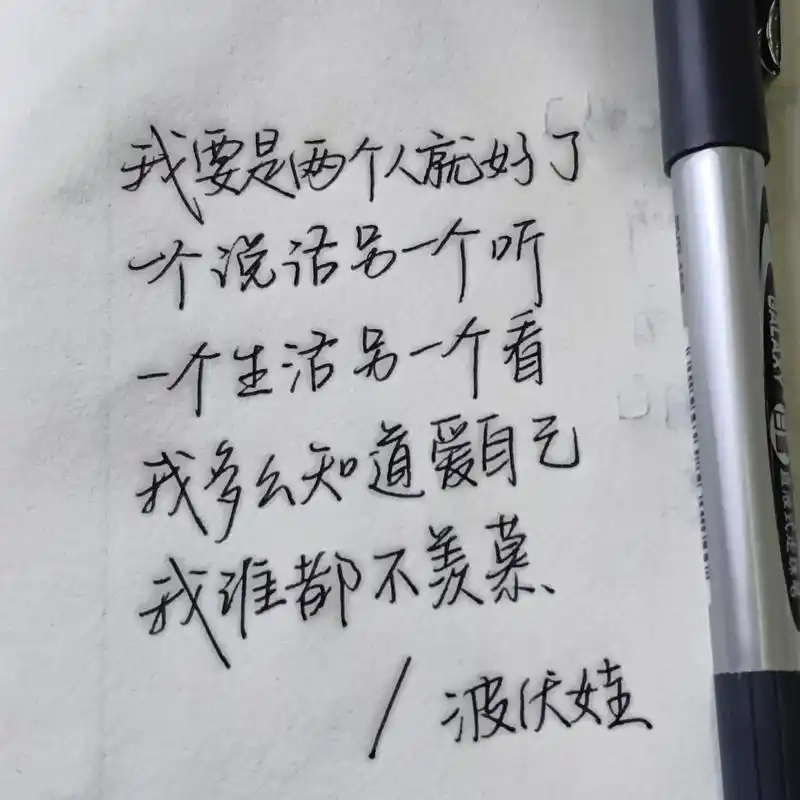 我要是两个人就好了
一个说话另一个听
一个生活另一个看
我多么知道爱自己
我谁都不羡慕
/ 波伏娃
GALAXY
直液式走珠笔